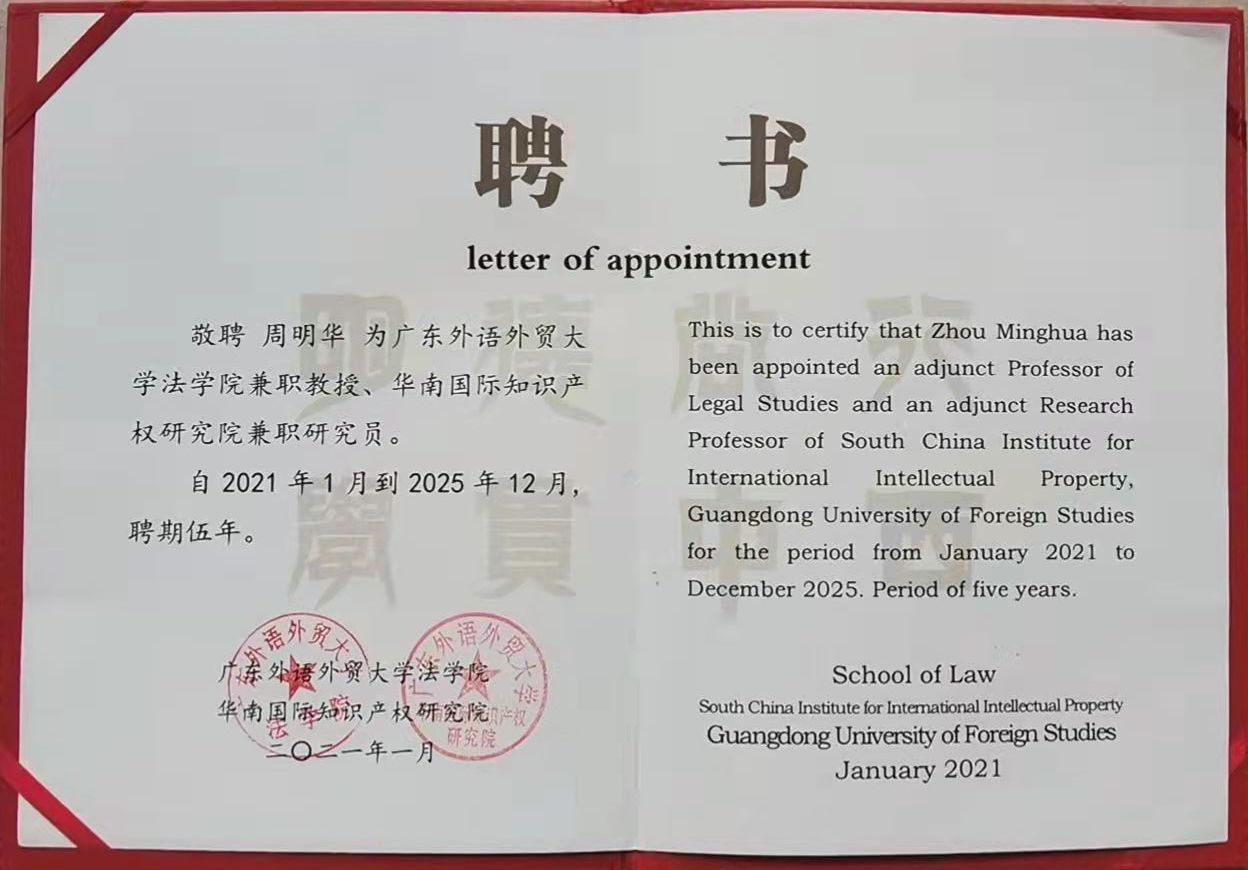 聘书
letter of appointment
敬聘 周明华 为广东外语外贸大
学法学院兼职教授、华南国际知识产
权研究院兼职研究员。
自 2021 年 1 月到 2025 年 12 月，
聘期伍年。
广东外语外贸大学法学院
华南国际知识产权研究院
二〇二一年一月
This is to certify that Zhou Minghua has
been appointed an adjunct Professor of
Legal Studies and an adjunct Research
Professor of South China Institute for
International Intellectual Property,
Guangdong University of Foreign Studies
for the period from January 2021 to
December 2025. Period of five years.
School of Law
South China Institute for International Intellectual Property
Guangdong University of Foreign Studies
January 2021
明德尚行
學貫中西
广东外语外贸大学
研究院